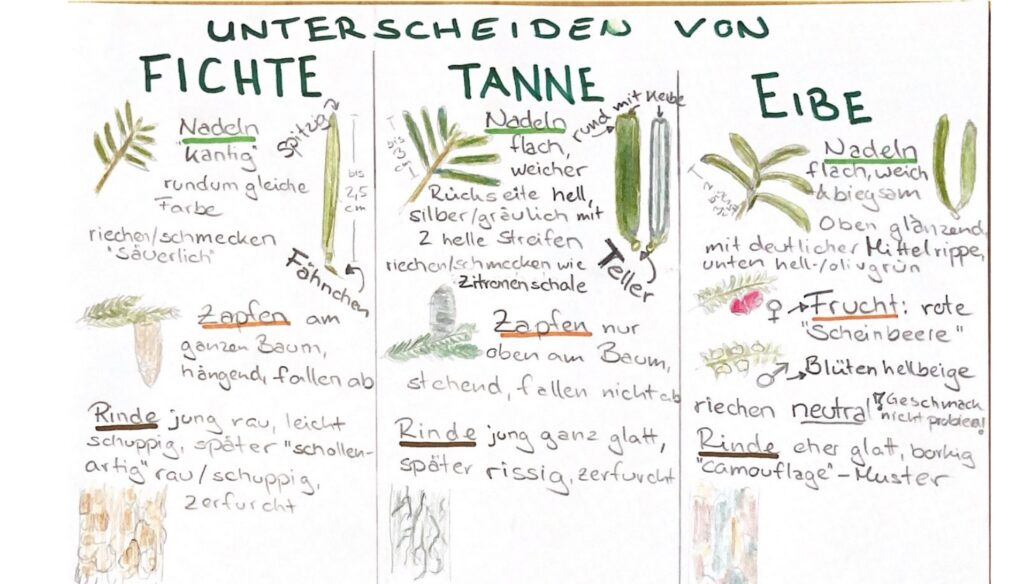 UNTERSCHEIDEN VON
FICHTE
Nadeln
"kantig"
rundum gleiche
Farbe
riechen/schmecken
"säuerlich"
Spitzig
bis
2,5
cm
Fähnchen
Zapfen am
ganzen Baum,
hängend, fallen ab
Rinde jung rau, leicht
schuppig, später "schollen-
artig" rau/schuppig,
zerfurcht
TANNE
Nadeln
flach,
weicher
Rückseite hell,
silber/gräulich mit
2 helle Streifen
riechen/schmecken wie
Zitronenschale
rund mit Kerbe
Teller
Zapfen nur
oben am Baum,
stehend, fallen nicht ab
Rinde jung ganz glatt,
später rissig, zerfurcht
EIBE
Nadeln
flach, weich
& biegsam
Oben glänzend,
mit deutlicher Mittelrippe,
unten hell-/olivgrün
♀ → Frucht: rote
"Scheinbeere"
♂ → Blüten hellbeige
riechen neutral
! Geschmack
nicht probieren!
Rinde eher glatt, borkig
"camouflage"-Muster